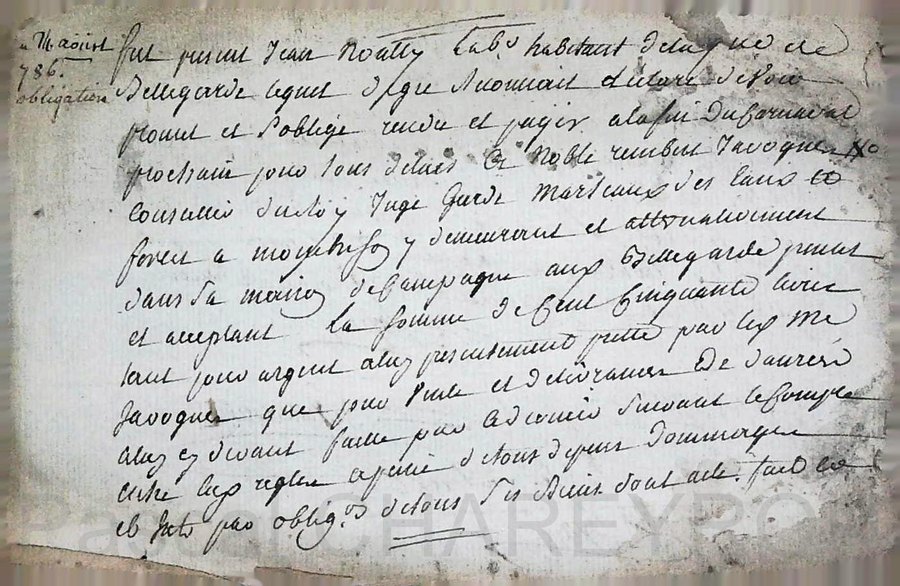 24 aoust
786.
obligation
fut present Jean Noally lab.r habitant de la par de
Bellegarde lequel de gre reconnait et declare devoir
promet et s'oblige rendre et payer a la fin du carnaval
prochain pour tous delais a Noble rembert Javogues
Conseiller du Roy Juge Garde Marteaux des Eaux et
forest a montbrison y demeurant et actuellement
dans sa maison de Campagne aux Bellegarde present
et acceptant la somme de Cent Cinquante livres
tant pour argent a luy presentement prette par led. Me
Javogues que pour vente et delivrance de danrées
a luy cy devant faitte par ce dernier suivant le compte
entre eux regle a peine de tous depens dommages
et Int.ts par oblig.on de tous ses Biens dont acte. fait
CHAREYRON